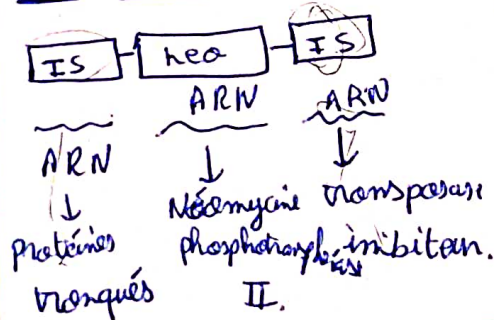 IS neo IS
ARN ARN ARN
Néomycine transposase
protéines phosphotransférase inhibiteur.
tronqués II.